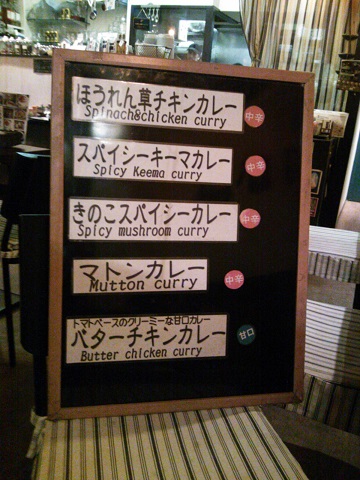 ほうれん草チキンカレー
Spinach&chicken curry
中辛
スパイシーキーマカレー
Spicy Keema curry
中辛
きのこスパイシーカレー
Spicy mushroom curry
中辛
マトンカレー
Mutton curry
中辛
トマトベースのクリーミーな甘口カレー
バターチキンカレー
Butter chicken curry
甘口